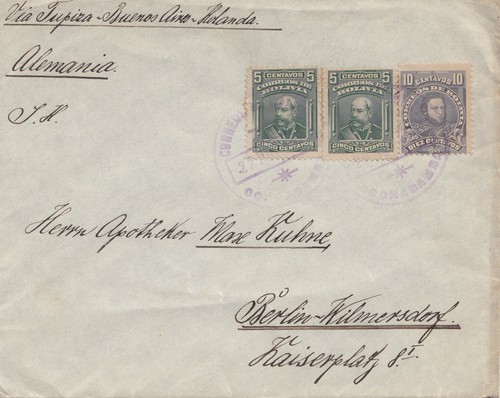 Via Tupiza - Buenos Aires - Holanda.
Alemania.
5 CENTAVOS 5
CORREOS DE BOLIVIA
CINCO CENTAVOS
5 CENTAVOS 5
CORREOS DE BOLIVIA
CINCO CENTAVOS
10 CENTAVOS 10
CORREOS DE BOLIVIA
DIEZ CENTAVOS
COCHABAMBA
Herrn Apotheker Max Kuhne,
Berlin-Wilmersdorf.
Kaiserplatz 8.I